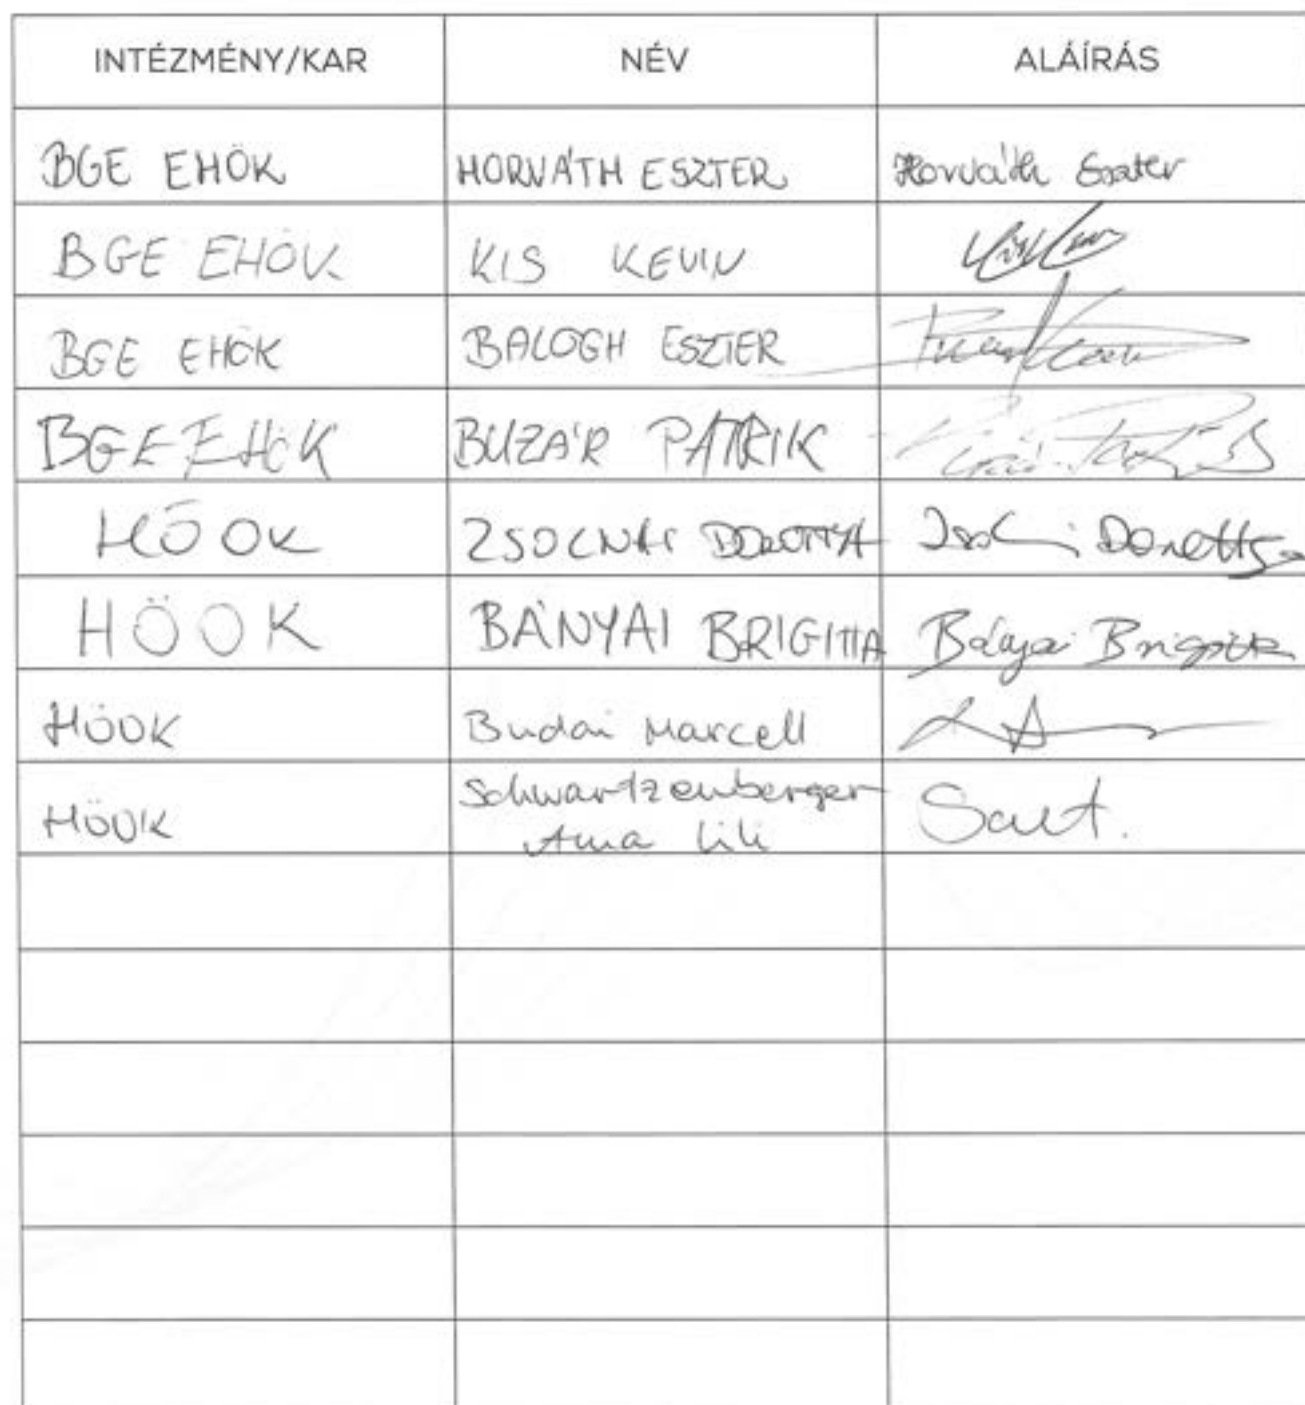 INTÉZMÉNY/KAR NÉV ALÁÍRÁS
BGE EHÖK HORVÁTH ESZTER Horváth Eszter
BGE EHÖK KIS KEVIN
BGE EHÖK BALOGH ESZTER
BGE EHÖK BUZÁR PATRIK
HÖOK ZSOLNAI DOROTTYA Dorottya
HÖOK BÁNYAI BRIGITTA Bányai Brigitta
HÖOK Budai Marcell
HÖOK Schwartzenberger
Anna Lili